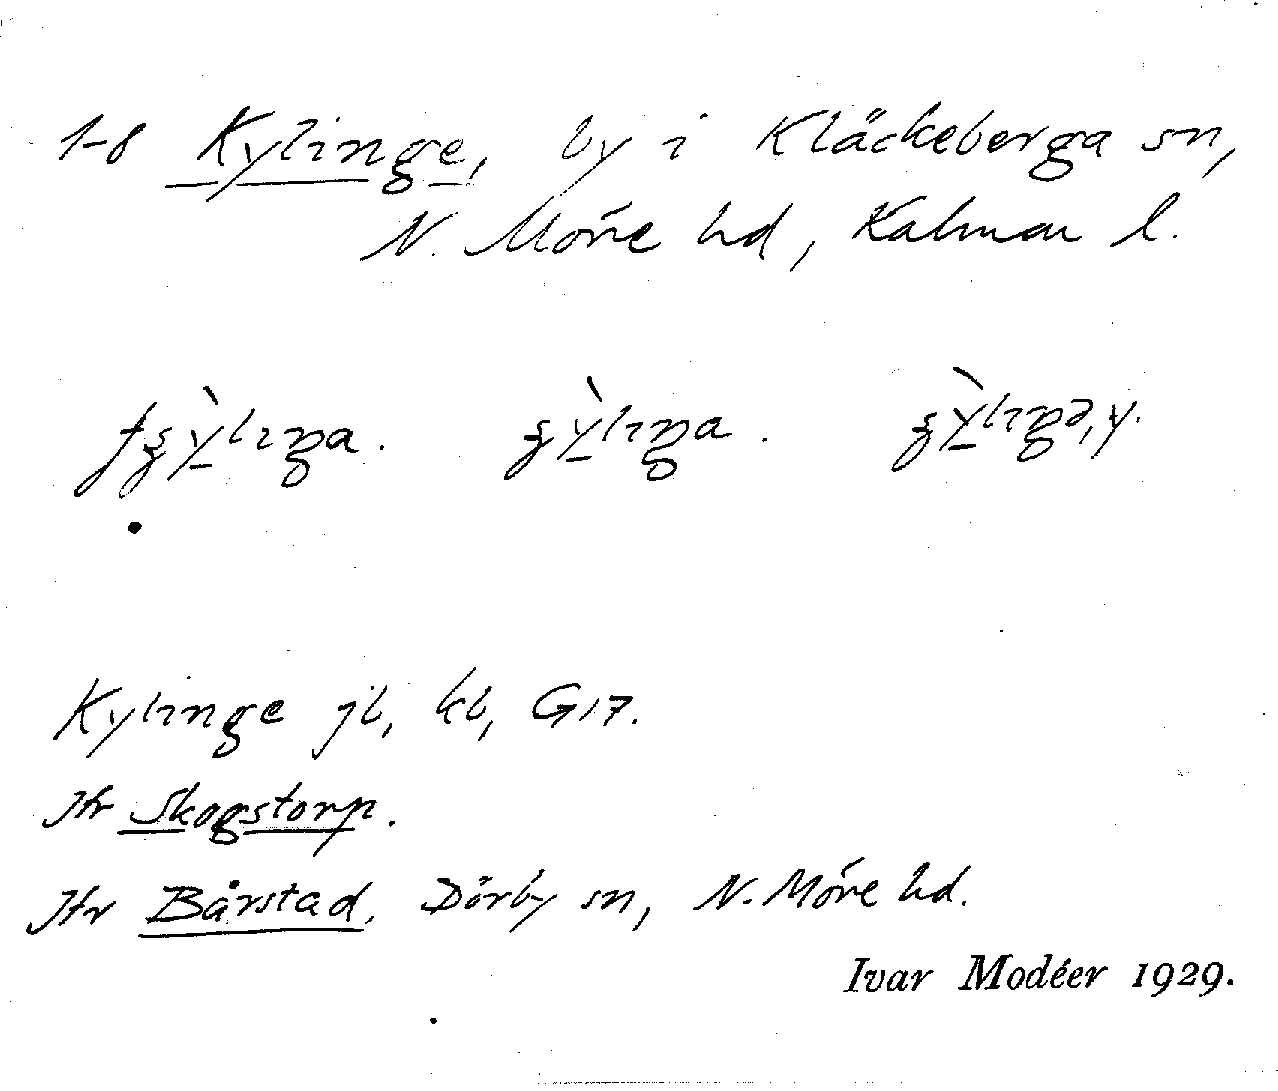 1-8 Kylinge, by i Kläckeberga sn,
N. Möre hd, Kalmar l.
Kylinge jb, kb, G17.
Jfr Skogstorp.
Jfr Bårstad, Dörby sn, N. Möre hd.
Ivar Modéer 1929.